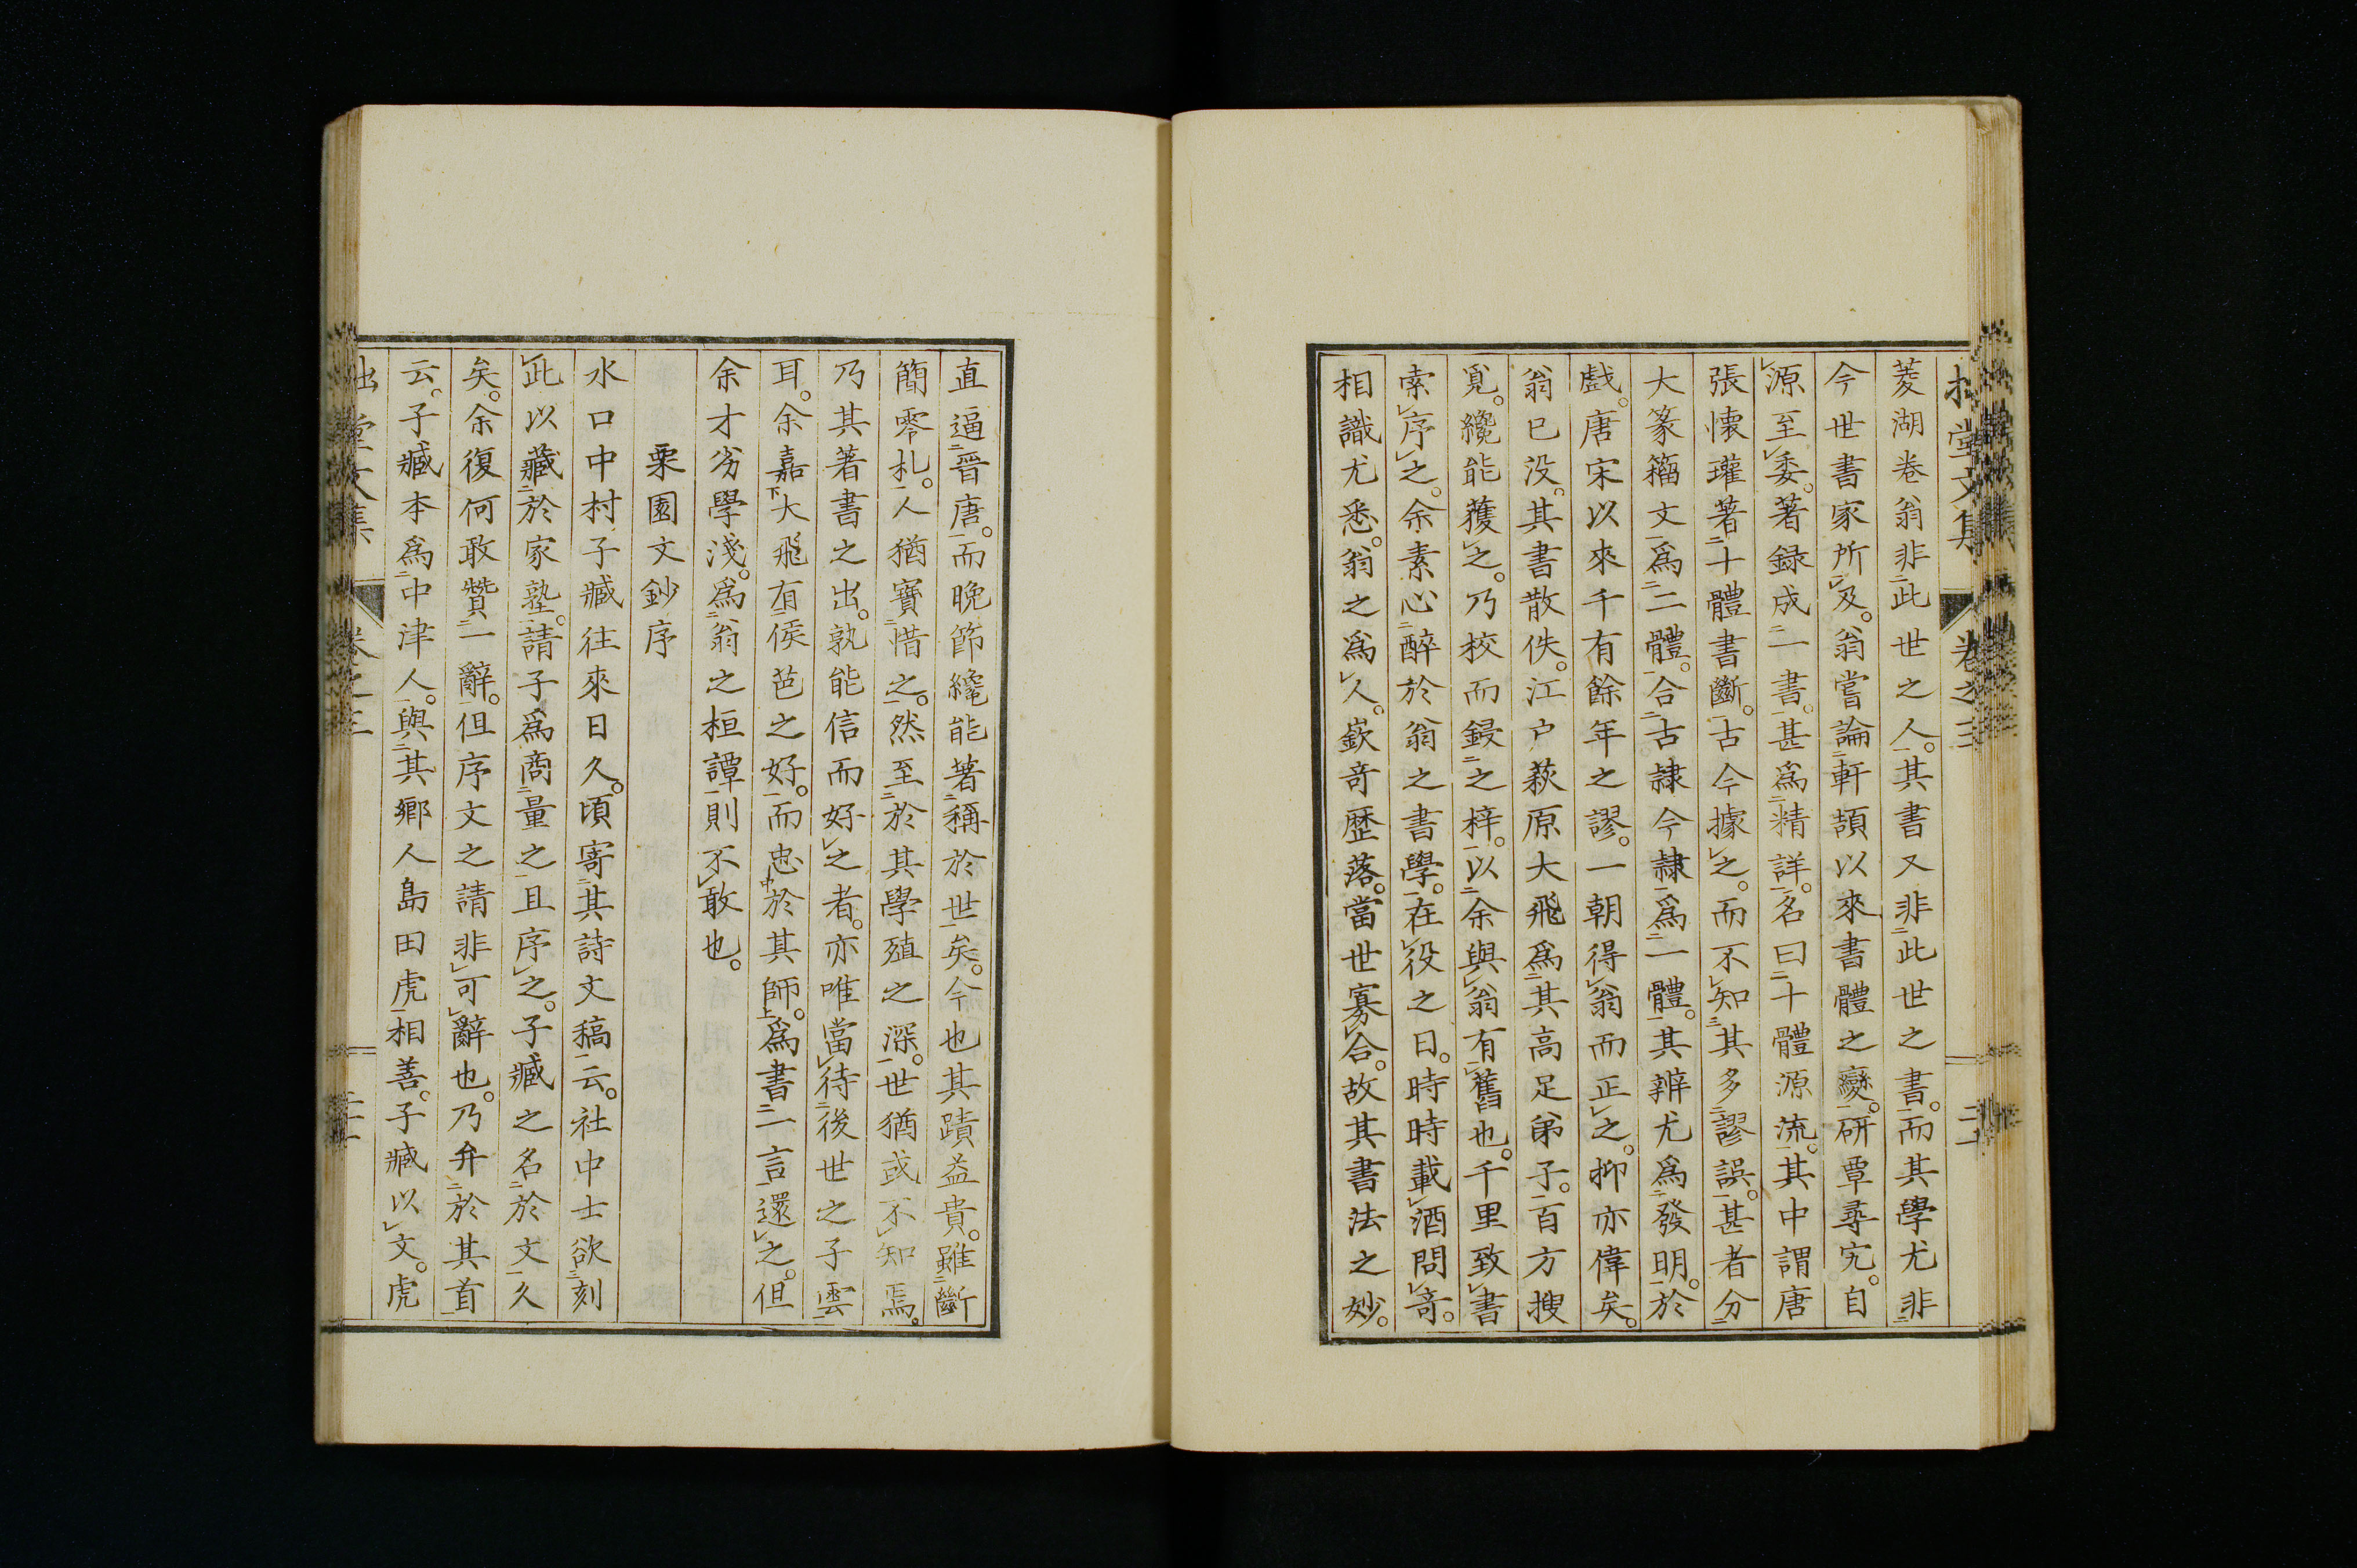 堂文集 卷之三
菱湖卷翁非此世之人。其書又非此世之書。而其學尤非
今世書家所及。翁嘗論軒頡以來書體之變。研覃尋究。自
源至委。著録成一書。甚爲精詳。名曰十體源流。其中謂唐
張懷瓘著十體書斷。古今據之。而不知其多謬誤。甚者分
大篆籀文爲二體。合古隷今隷爲一體。其辨尤爲發明。於
戲。唐宋以來千有餘年之謬。一朝得翁而正之。抑亦偉矣。
翁已没。其書散佚。江户萩原大飛爲其高足弟子。百方搜
覓。纔能獲之。乃校而鋟之梓。以余與翁有舊也。千里致書
索序之。余素心醉於翁之書學。在役之日。時時載酒問奇。
相識尤悉。翁之爲人。嶔奇歴落。當世寡合。故其書法之妙。
直逼晉唐。而晩節纔能著稱於世矣。今也其蹟益貴。雖斷
簡零札。人猶寶惜之。然至於其學殖之深。世猶或不知焉。
乃其著書之出。孰能信而好之者。亦唯當待後世之子雲
耳。余嘉大飛有侯芭之好。而忠於其師。爲書一言還之。但
余才劣學淺。爲翁之桓譚則不敢也。
栗園文鈔序
水口中村子臧往來日久。頃寄其詩文稿云。社中士欲刻
此以藏於家塾。請子爲商量之且序之。子臧之名於文久
矣。余復何敢贊一辭。但序文之請非可辭也。乃弁於其首
云。子臧本爲中津人。與其鄉人島田虎相善。子臧以文。虎
堂文集 卷之三